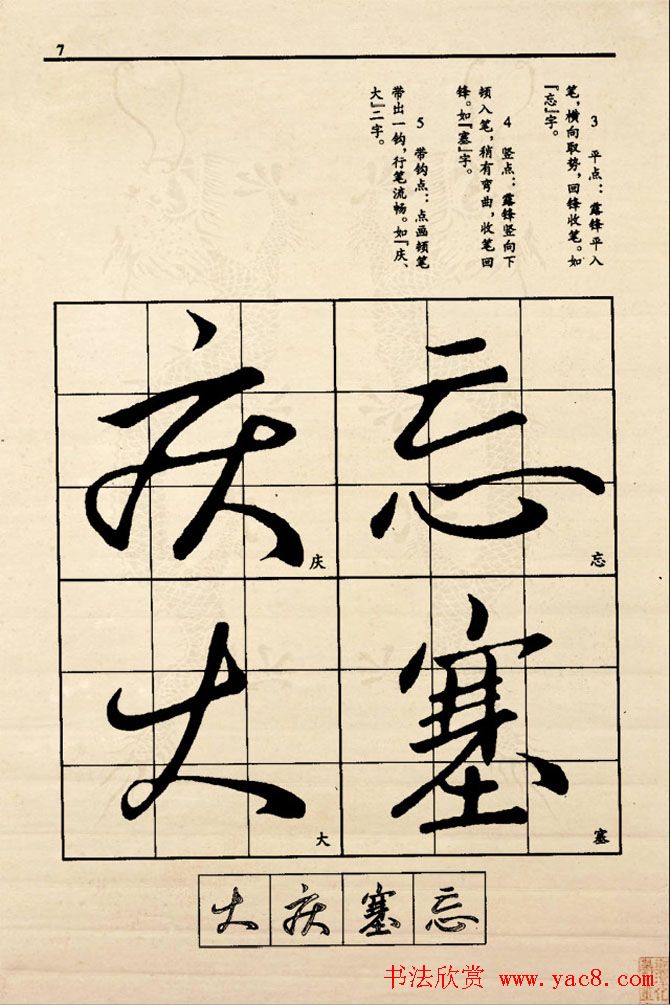 7
3 平点：露锋平入
笔，横向取势，回锋收笔。如
『忘』字。
4 竖点：露锋竖向下
顿入笔，稍有弯曲，收笔回
锋。如『塞』字。
5 带钩点：点画顿笔
带出一钩，行笔流畅。如『庆、
大』二字。
忘
忘
塞
塞
庆
庆
大
大
大庆塞忘
书法欣赏 www.yac8.com